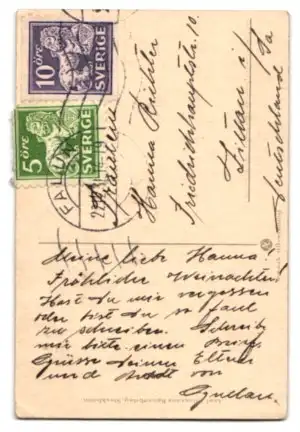 10 ÖRE
SVERIGE
5 ÖRE
SVERIGE
FALUN
Fräulein
Hanna Richter
Friedrichhauptstr. 10.
Zittau i/Sa
Deutschland
Meine liebe Hanna!
Fröhliche Weinachten!
Hast du mir vergessen
oder bist du so faul
zu schreiben. Schreib
mir bitte einen Brief.
Grüsse deinen Eltern
und von
Stockholm